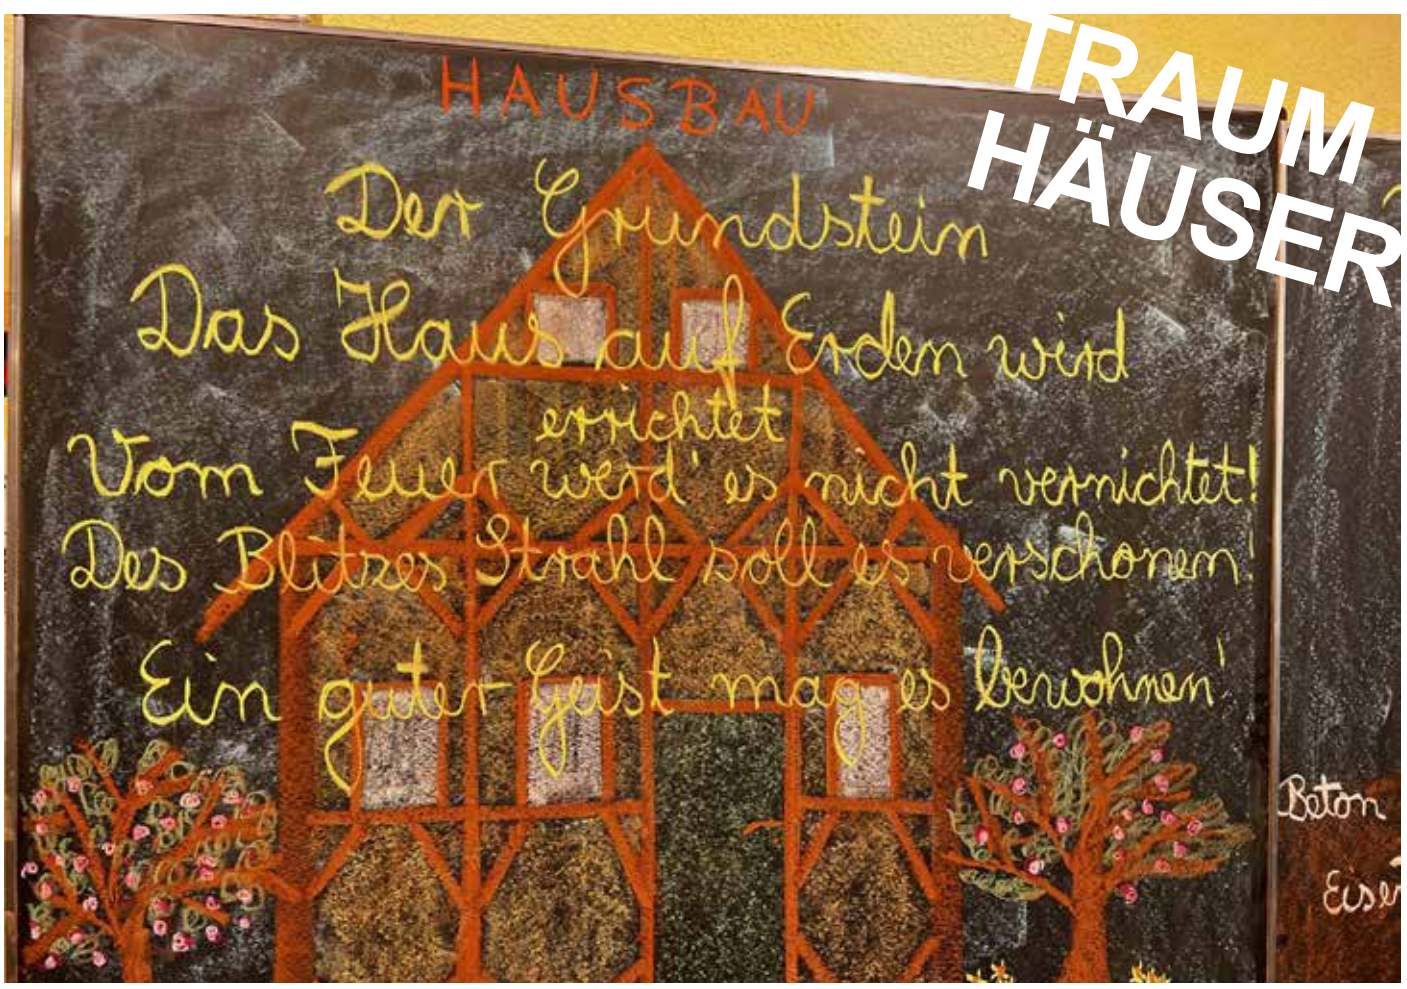 TRAUM
HÄUSER
HAUSBAU
Der Grundstein
Das Haus auf Erden wird
errichtet
Vom Feuer werd' es nicht vernichtet!
Des Blitzes Strahl soll es verschonen!
Ein guter Geist mag es bewohnen!
Beton